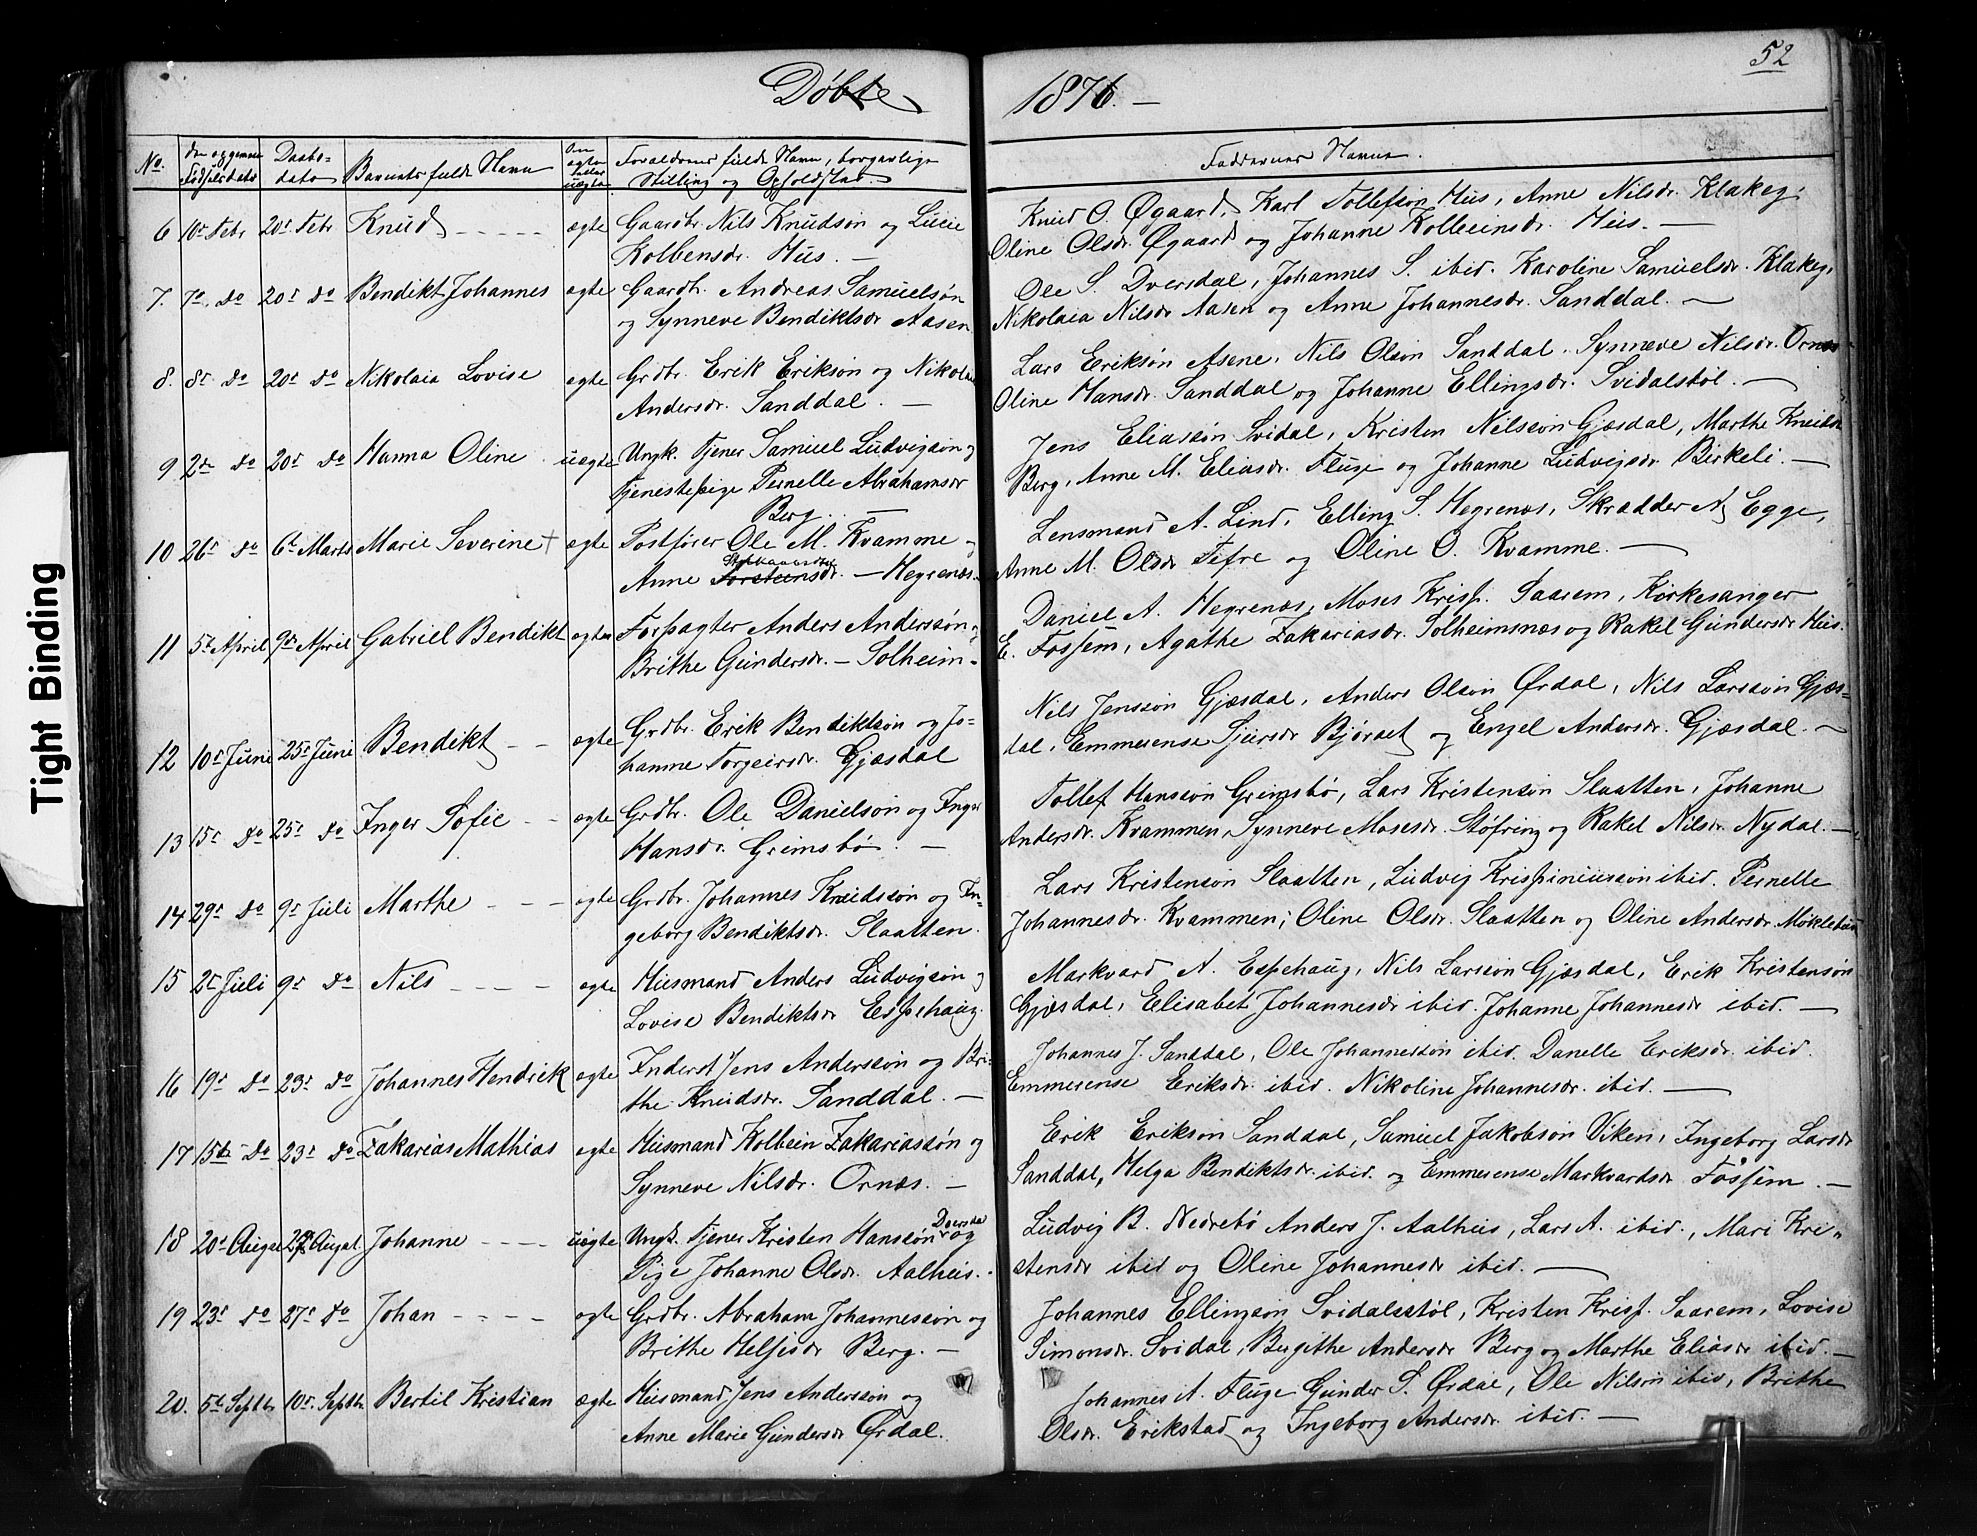 52
Døbte
1876. —
No.
Den opgivne Fødselsdato
Daabsdato
Barnets fulde Navn
Om ægte eller uægte
Forældrenes fulde Navn, borgerlige
Stilling og Opholdsted.
Faddernes Navne.
6 10de Febr 20de Febr Knud - - - - ægte Gaardbr. Nils Knudsøn og Lucie
Kolbensdr. Hus. —
Knud O. Øgaard, Karl Tollefsøn Hus, Anne Nilsdr. Klakeg,
Oline Olsdr. Øgaard og Johanne Kolbeinsdr. Hus. —
7. 7de do 20de do Bendikt Johannes ægte Gaardbr. Andreas Samuelsøn
og Synneve Bendiktsdr Aasen
Ole S. Dversdal, Johannes S. ibid. Karoline Samuelsdr. Klakeg,
Nikolaia Nilsdr Aasen og Anne Johannesdr. Sanddal. —
8. 8de do 20de do Nikolaia Lovise ægte Grdbr. Erik Eriksøn og Nikolai
Andersdr. Sanddal. —
Lars Eriksøn Asene, Nils Olsøn Sanddal. Synneve Nilsdr. Ornes
Oline Hansdr. Sanddal og Johanne Ellingsdr. Svidalstøl. —
9 2de do 20de do Hanna Oline uægte Ungk. Tjener Samuel Ludvigsøn og
Tjenestepige Pernelle Abrahamsdr
Berg. —
Jens Eliassøn Svidal, Kristen Nilssøn Gjæsdal, Marthe Knudsdr
Berg, Anne M. Eliasdr. Fluge og Johanne Ludvigsdr. Birkeli. —
10 26de do 6te Marts Marie Severine + ægte Postfører Ole M. Kvamme og
Anne Torsteinsdr. — Hegrenæs
Lensmand A. Lind, Elling S. Hegrenæs, Skrædder A Egge,
Anne M. Olsdr Tefre og Oline O. Kvamme. —
11 5te April 9de April Gabriel Bendikt ægte Forpagter Anders Anderssøn og
Brithe Gundersdr. — Solheim.
Daniel A. Hegrenæs, Moses Krisp. Saarem, Kirkesanger
E. Fossem, Agathe Zakariasdr. Solheimsnæs og Rakel Gundersdr Hus.
12 10de Juni 25de Juni Bendikt - - ægte Grdbr. Erik Bendiktsøn og Jo=
hanne Torgeirsdr. Gjæsdal
Nils Jenssøn Gjæsdal, Anders Olsøn Ørdal, Nils Larssøn Gjæs-
dal, Emmerense Sjursdr Bjøraet og Engel Andersdr. Gjæsdal. —
13 15de do 25de do Inger Sofie - - ægte Grdbr. Ole Danielsøn og Inger
Hansdr. Grimsbø. —
Tollef Hanssøn Grimsbø, Lars Kristensøn Slaatten, Johanne
Andersdr. Kvammen, Synneve Mosesdr. Støfring og Rakel Nilsdr. Nydal. —
14 29de do 9de Juli Marthe - - - ægte Grdbr. Johannes Knudssøn og In-
geborg Bendiktsdr. Slaatten.
Lars Kristensøn Slaatten, Ludvig Krispinussøn ibid. Pernelle
Johannesdr. Kvammen; Oline Olsdr. Slaatten og Oline Andersdr. Møklebust
15 2de Juli 9de do Nils - - - - ægte Husmand Anders Ludvigsøn og
Lovise Bendiktsdr Espehaug.
Markvard A. Espehaug, Nils Larssøn Gjæsdal, Erik Kristensøn
Gjæsdal, Elisabet Johannesdr ibid. Johanne Johannesdr ibid. —
16 19de do 23de do Johannes Hendrik ægte Inderst Jens Anderssøn og Bri=
the Knudsdr. Sanddal. —
Johannes J. Sanddal, Ole Johannessøn ibid. Danelle Eriksdr. ibid.
Emmerense Eriksdr. ibid. Nikoline Johannesdr. ibid. —
17 15de do 23de do Zakarias Mathias ægte Husmand Kolbein Zakariassøn og
Synneve Nilsdr. Ornæs. —
Erik Eriksøn Sanddal, Samuel Jakobsøn Viken, Ingeborg Larsdr
Sanddal, Helga Bendiktsdr. ibid. og Emmerense Markvardsdr Fossem. —
18 20de August 27de August Johanne - - - - uægte Ungk. Tjener Kristen Hanssøn Dversdal og
Pige Johanne Olsdr. Aalhus.
Ludvig B. Nedrebø Anders J. Aalhus, Lars A. ibid., Mari Kri-
stensdr ibid og Oline Johannesdr ibid. —
19 23de do 27de do Johan - - - - ægte Grdbr. Abraham Johannessøn og
Brithe Helgesdr Berg. —
Johannes Ellingsøn Svidalsstøl, Kristen Krisp. Saarem, Lovise
Simonsdr. Svidal, Bergithe Andersdr Berg og Marthe Eliasdr ibid. —
20. 5te Septbr. 10de Septbr Bertil Kristian ægte Husmand Jens Anderssøn og
Anne Marie Gundersdr Ørdal.
Johannes A. Fluge Gunder S. Ørdal, Ole Nilsøn ibid, Brithe
Olsdr. Erikstad og Ingeborg Andersdr. ibid. —
Tight Binding